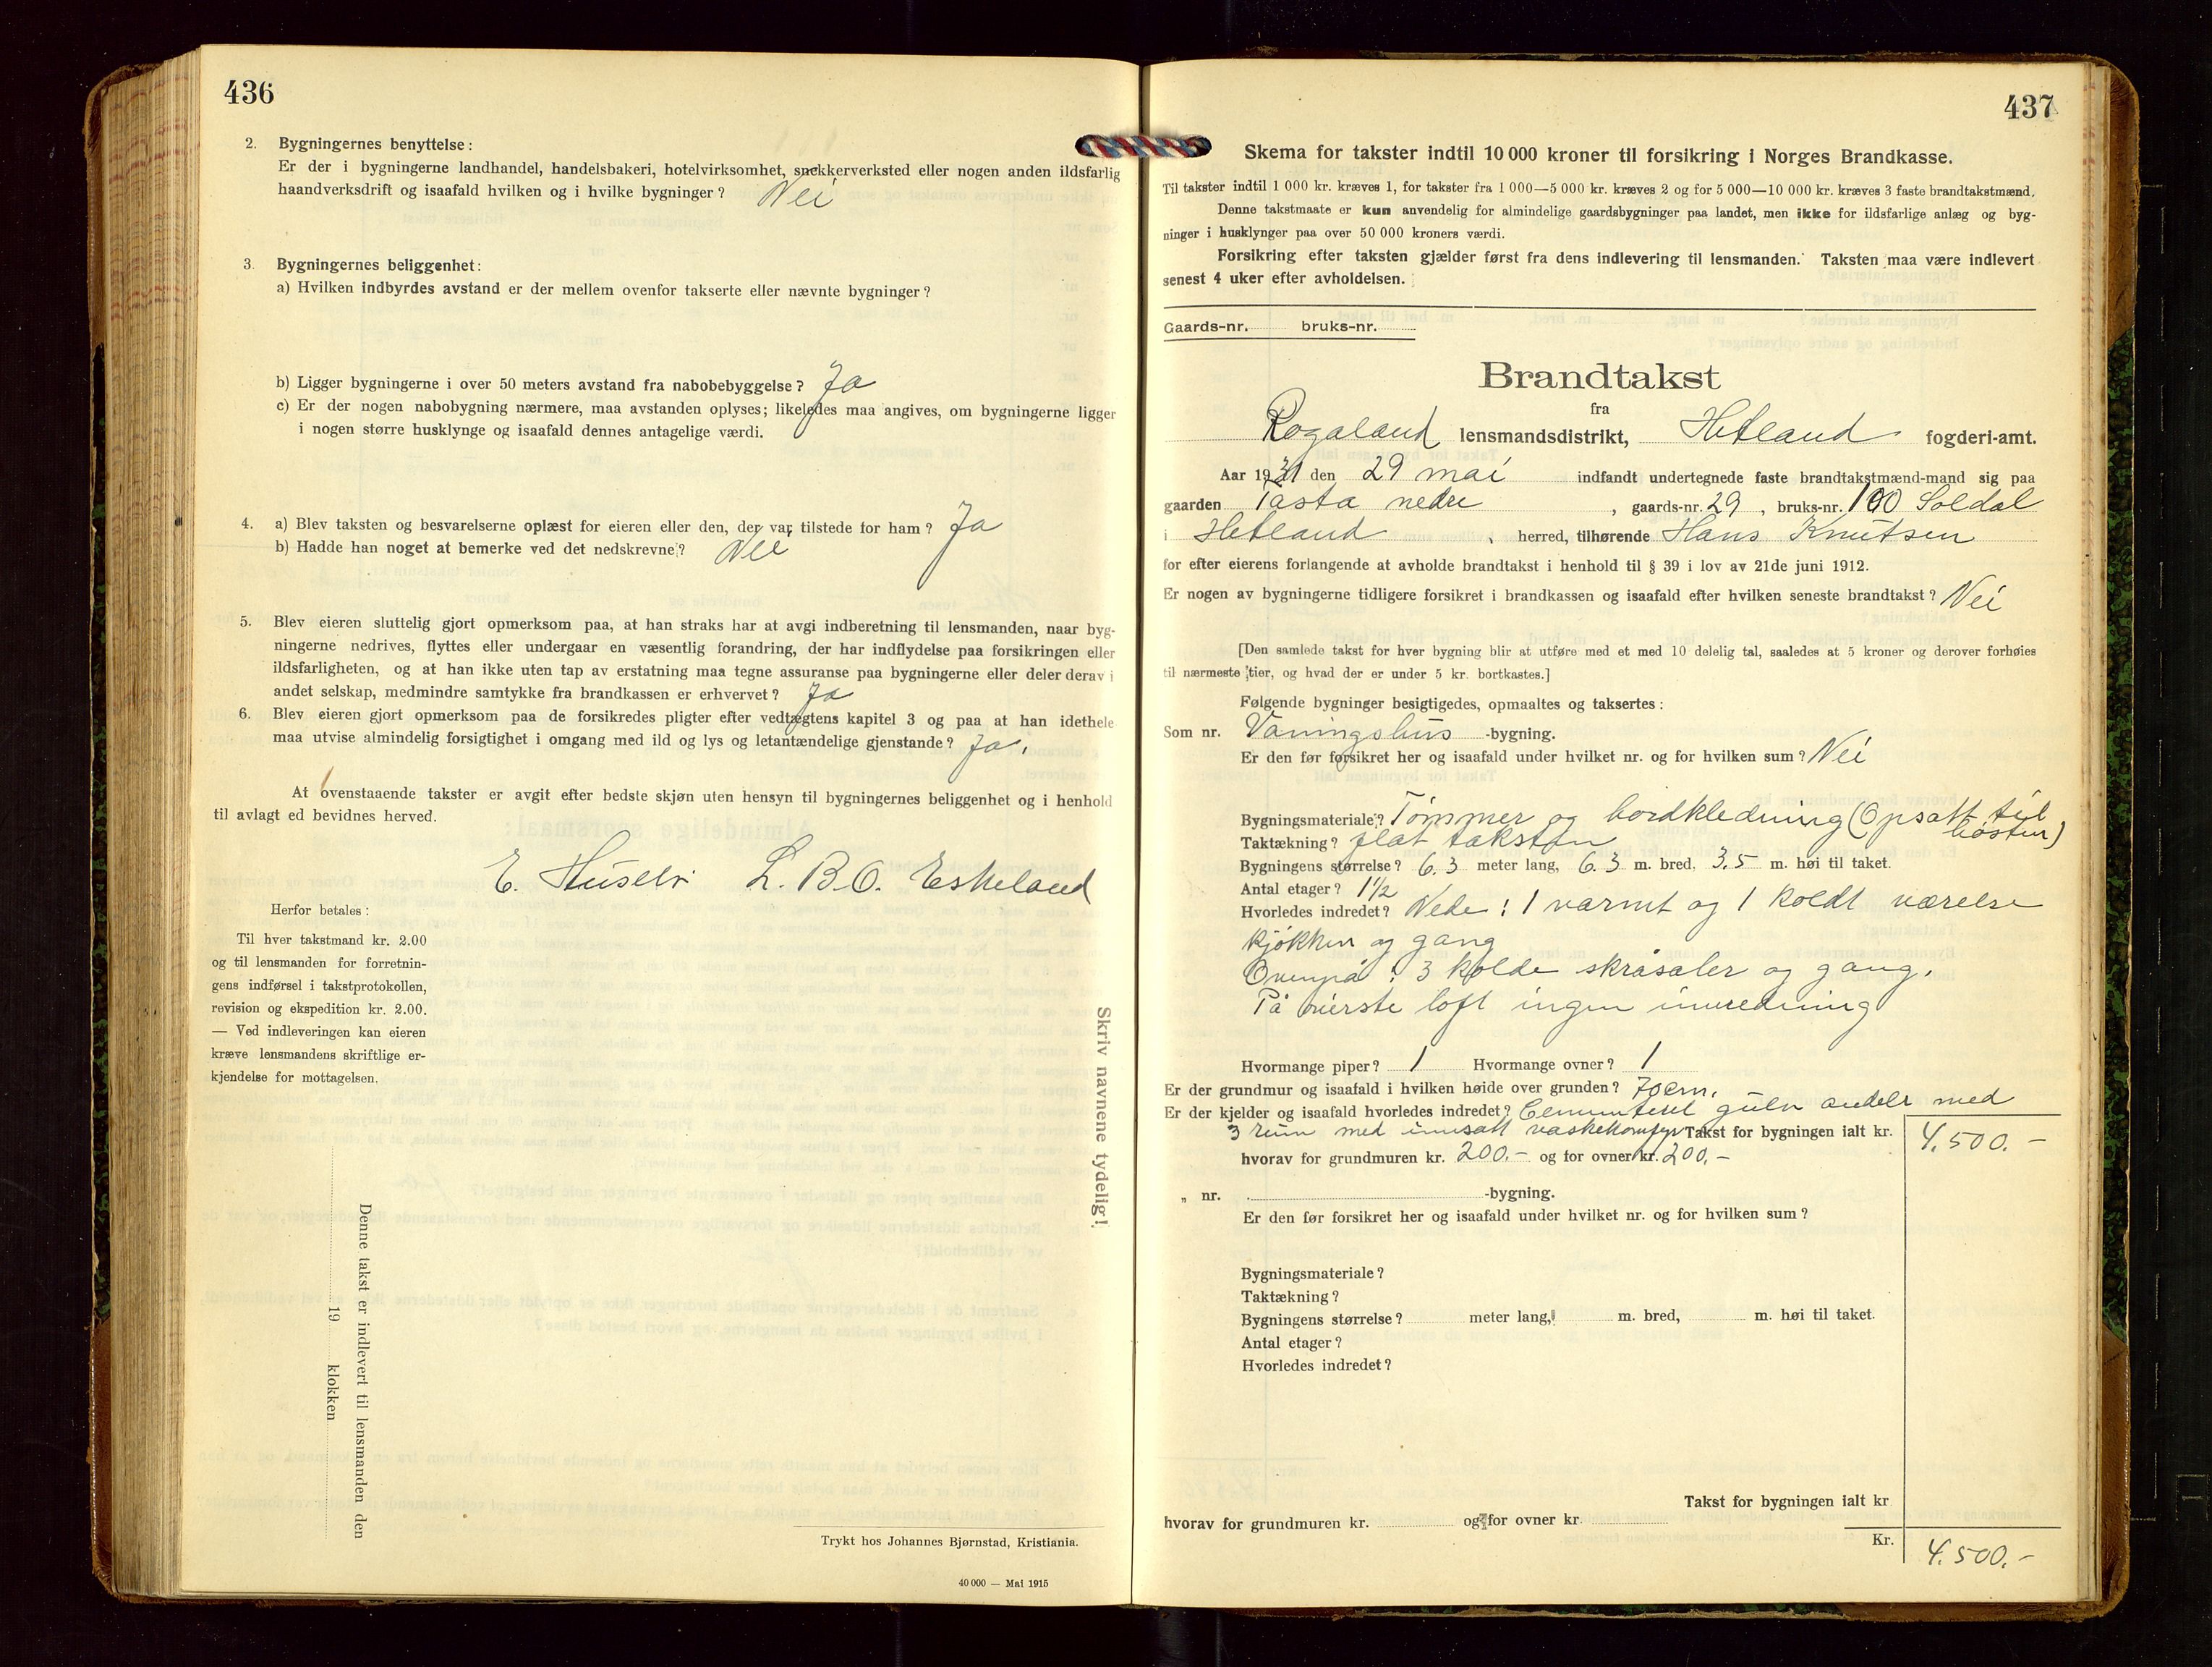 436
2. Bygningernes benyttelse:
Er der i bygningerne landhandel, handelsbakeri, hotelvirksomhet, snekkerverksted eller nogen anden ildsfarlig
haandverksdrift og isaafald hvilken og i hvilke bygninger? Nei
3. Bygningernes beliggenhet:
a) Hvilken indbyrdes avstand er der mellem ovenfor takserte eller nævnte bygninger?
b) Ligger bygningerne i over 50 meters avstand fra nabobebyggelse? Ja
c) Er der nogen nabobygning nærmere, maa avstanden oplyses; likeledes maa angives, om bygningerne ligger
i nogen større husklynge og isaafald dennes antagelige værdi.
4. a) Blev taksten og besvarelserne oplæst for eieren eller den, der var tilstede for ham? Ja
b) Hadde han noget at bemerke ved det nedskrevne? Nei
5. Blev eieren sluttelig gjort opmerksom paa, at han straks har at avgi indberetning til lensmanden, naar byg-
ningerne nedrives, flyttes eller undergaar en væsentlig forandring, der har indflydelse paa forsikringen eller
ildsfarligheten, og at han ikke uten tap av erstatning maa tegne assuranse paa bygningerne eller deler derav i
andet selskap, medmindre samtykke fra brandkassen er erhvervet? Ja
6. Blev eieren gjort opmerksom paa de forsikredes pligter efter vedtægtens kapitel 3 og paa at han idethele
maa utvise almindelig forsigtighet i omgang med ild og lys og letantændelige gjenstande? Ja.
At ovenstaaende takster er avgit efter bedste skjøn uten hensyn til bygningernes beliggenhet og i henhold
til avlagt ed bevidnes herved.
E. L. B. O. Eskeland
Herfor betales:
Til hver takstmand kr. 2.00
og til lensmanden for forretnin-
gens indførsel i takstprotokollen,
revision og ekspedition kr. 2.00.
— Ved indleveringen kan eieren
kræve lensmandens skriftlige er-
kjendelse for mottagelsen.
Denne takst er indlevert til lensmanden den
19 klokken
Skriv navnene tydelig!
Trykt hos Johannes Bjørnstad, Kristiania.
40 000 — Mai 1915
437
Skema for takster indtil 10 000 kroner til forsikring i Norges Brandkasse.
Til takster indtil 1 000 kr. kræves 1, for takster fra 1 000—5 000 kr. kræves 2 og for 5 000—10 000 kr. kræves 3 faste brandtakstmænd.
Denne takstmaate er kun anvendelig for almindelige gaardsbygninger paa landet, men ikke for ildsfarlige anlæg og byg-
ninger i husklynger paa over 50 000 kroners værdi.
Forsikring efter taksten gjælder først fra dens indlevering til lensmanden. Taksten maa være indlevert
senest 4 uker efter avholdelsen.
Gaards-nr. bruks-nr.
Brandtakst
fra
Rogaland lensmandsdistrikt, Hetland fogderi-amt.
Aar 1931 den 29 mai indfandt undertegnede faste brandtakstmænd-mand sig paa
gaarden Tasta nedre, gaards-nr. 29, bruks-nr. 100 Soldal
i Hetland, herred, tilhørende Hans Knutsen
for efter eierens forlangende at avholde brandtakst i henhold til § 39 i lov av 21de juni 1912.
Er nogen av bygningerne tidligere forsikret i brandkassen og isaafald efter hvilken seneste brandtakst? Nei
[Den samlede takst for hver bygning blir at utføre med et med 10 delelig tal, saaledes at 5 kroner og derover forhøies
til nærmeste tier, og hvad der er under 5 kr. bortkastes.]
Følgende bygninger besigtigedes, opmaaltes og taksertes:
Som nr. Våningshus -bygning.
Er den før forsikret her og isaafald under hvilket nr. og for hvilken sum? Nei
Bygningsmateriale? Tømmer og bordkledning (Opsatt til
høsten)
Taktækning? flat takstøn
Bygningens størrelse? 6.3 meter lang, 6.3 m. bred, 3.5 m. høi til taket.
Antal etager? 1 1/2
Hvorledes indredet? Nede: 1 varmt og 1 koldt værelse
kjøkken og gang
Ovenpå: 3 kolde skråsaler og gang.
På øverste loft ingen innredning
Hvormange piper? 1 Hvormange ovner? 1
Er der grundmur og isaafald i hvilken høide over grunden? 70 cm.
Er der kjelder og isaafald hvorledes indredet? gulv med
3 rum med innsatt vaskekomfyr Takst for bygningen ialt kr. 4.500.-
hvorav for grundmuren kr. 200.- og for ovner kr. 200.-
„ nr. -bygning.
Er den før forsikret her og isaafald under hvilket nr. og for hvilken sum?
Bygningsmateriale?
Taktækning?
Bygningens størrelse? meter lang, m. bred, m. høi til taket.
Antal etager?
Hvorledes indredet?
Takst for bygningen ialt kr
hvorav for grundmuren kr. og for ovner kr.
Kr. 4.500.-